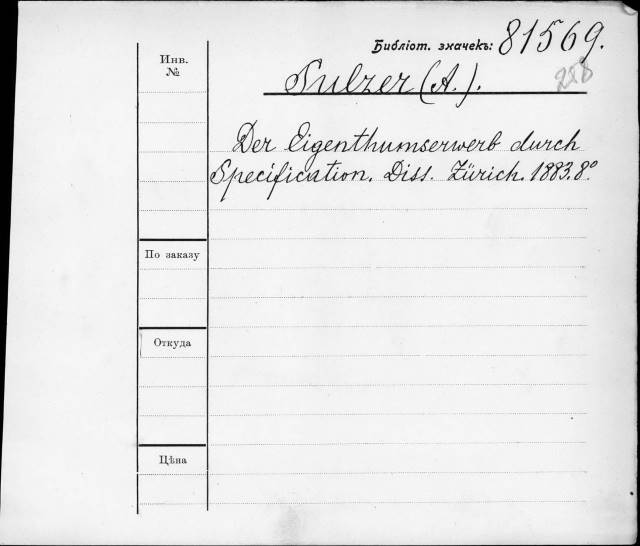 Библіот. значекъ: 81569.
Инв. №
258
Sulzer (A.).
Der Eigenthumserwerb durch
Specification. Diss. Zürich. 1883. 8°
По заказу
Откуда
Цѣна